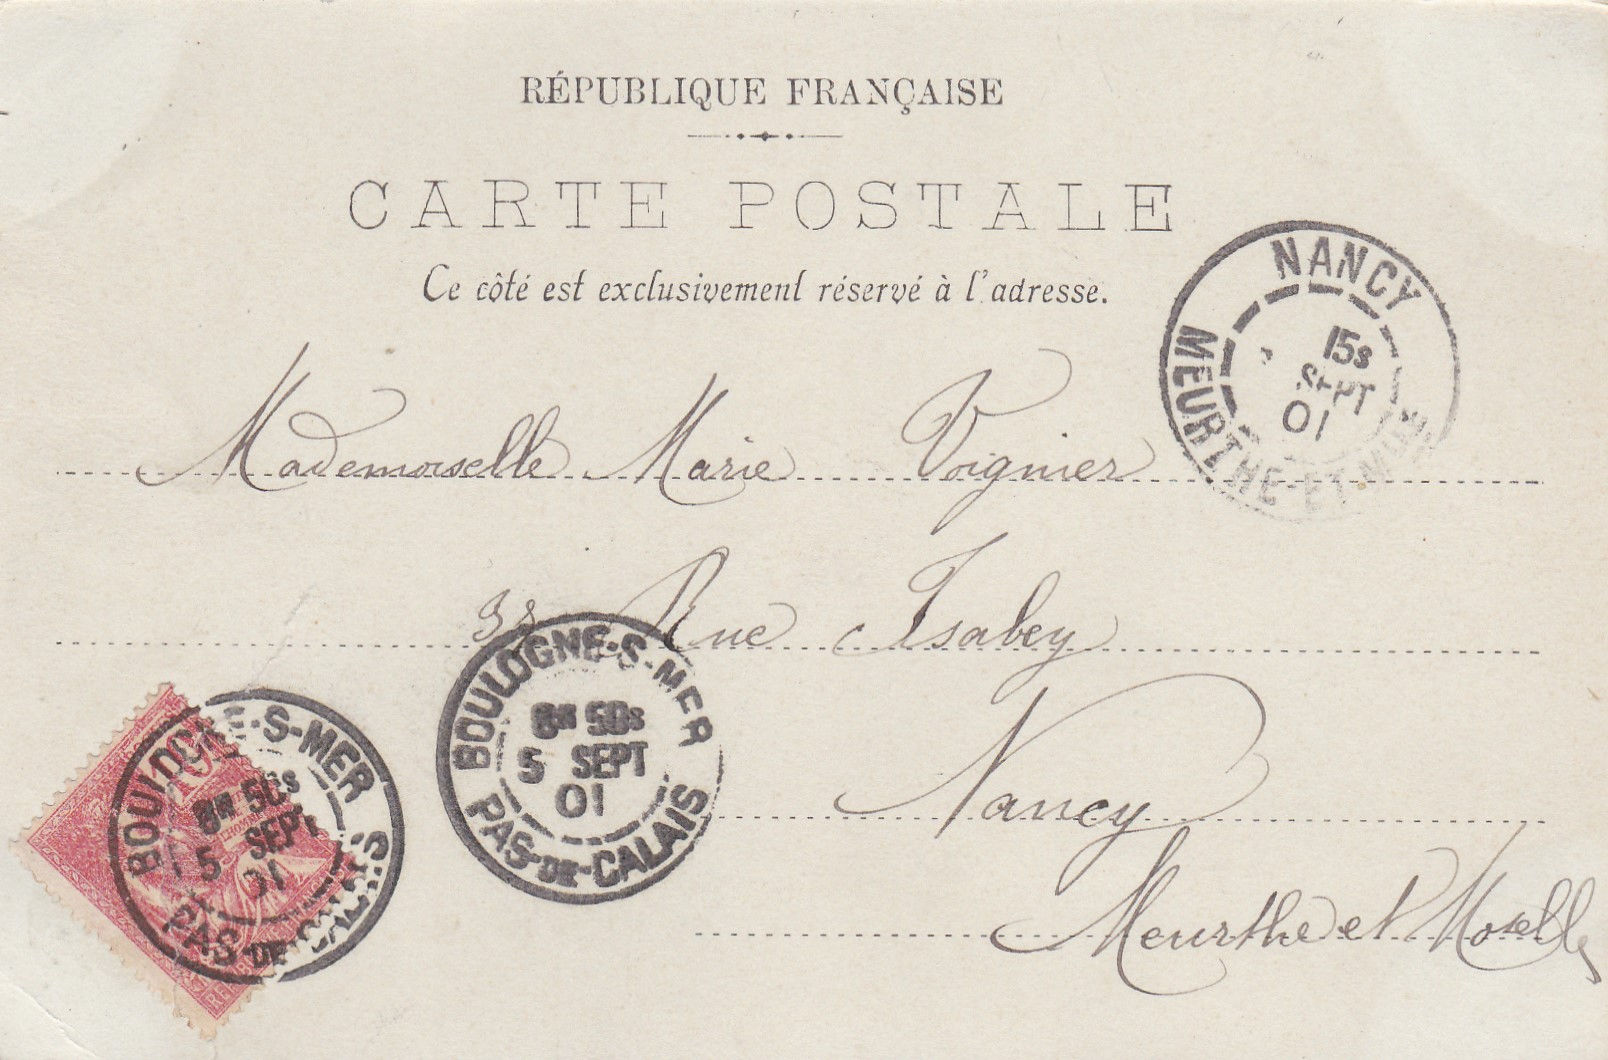 RÉPUBLIQUE FRANÇAISE
CARTE POSTALE
Ce côté est exclusivement réservé à l'adresse.
NANCY
15s
SEPT
01
MEURTHE-ET-M
Mademoiselle Marie Voignier
Rue Isabey
Nancy
Meurthe et Moselle
BOULOGNE-S-MER
8H 50s
5 SEPT
01
PAS-DE-CALAIS
BOULOGNE-S-MER
8H 50s
5 SEPT
01
PAS-DE-CALAIS
10